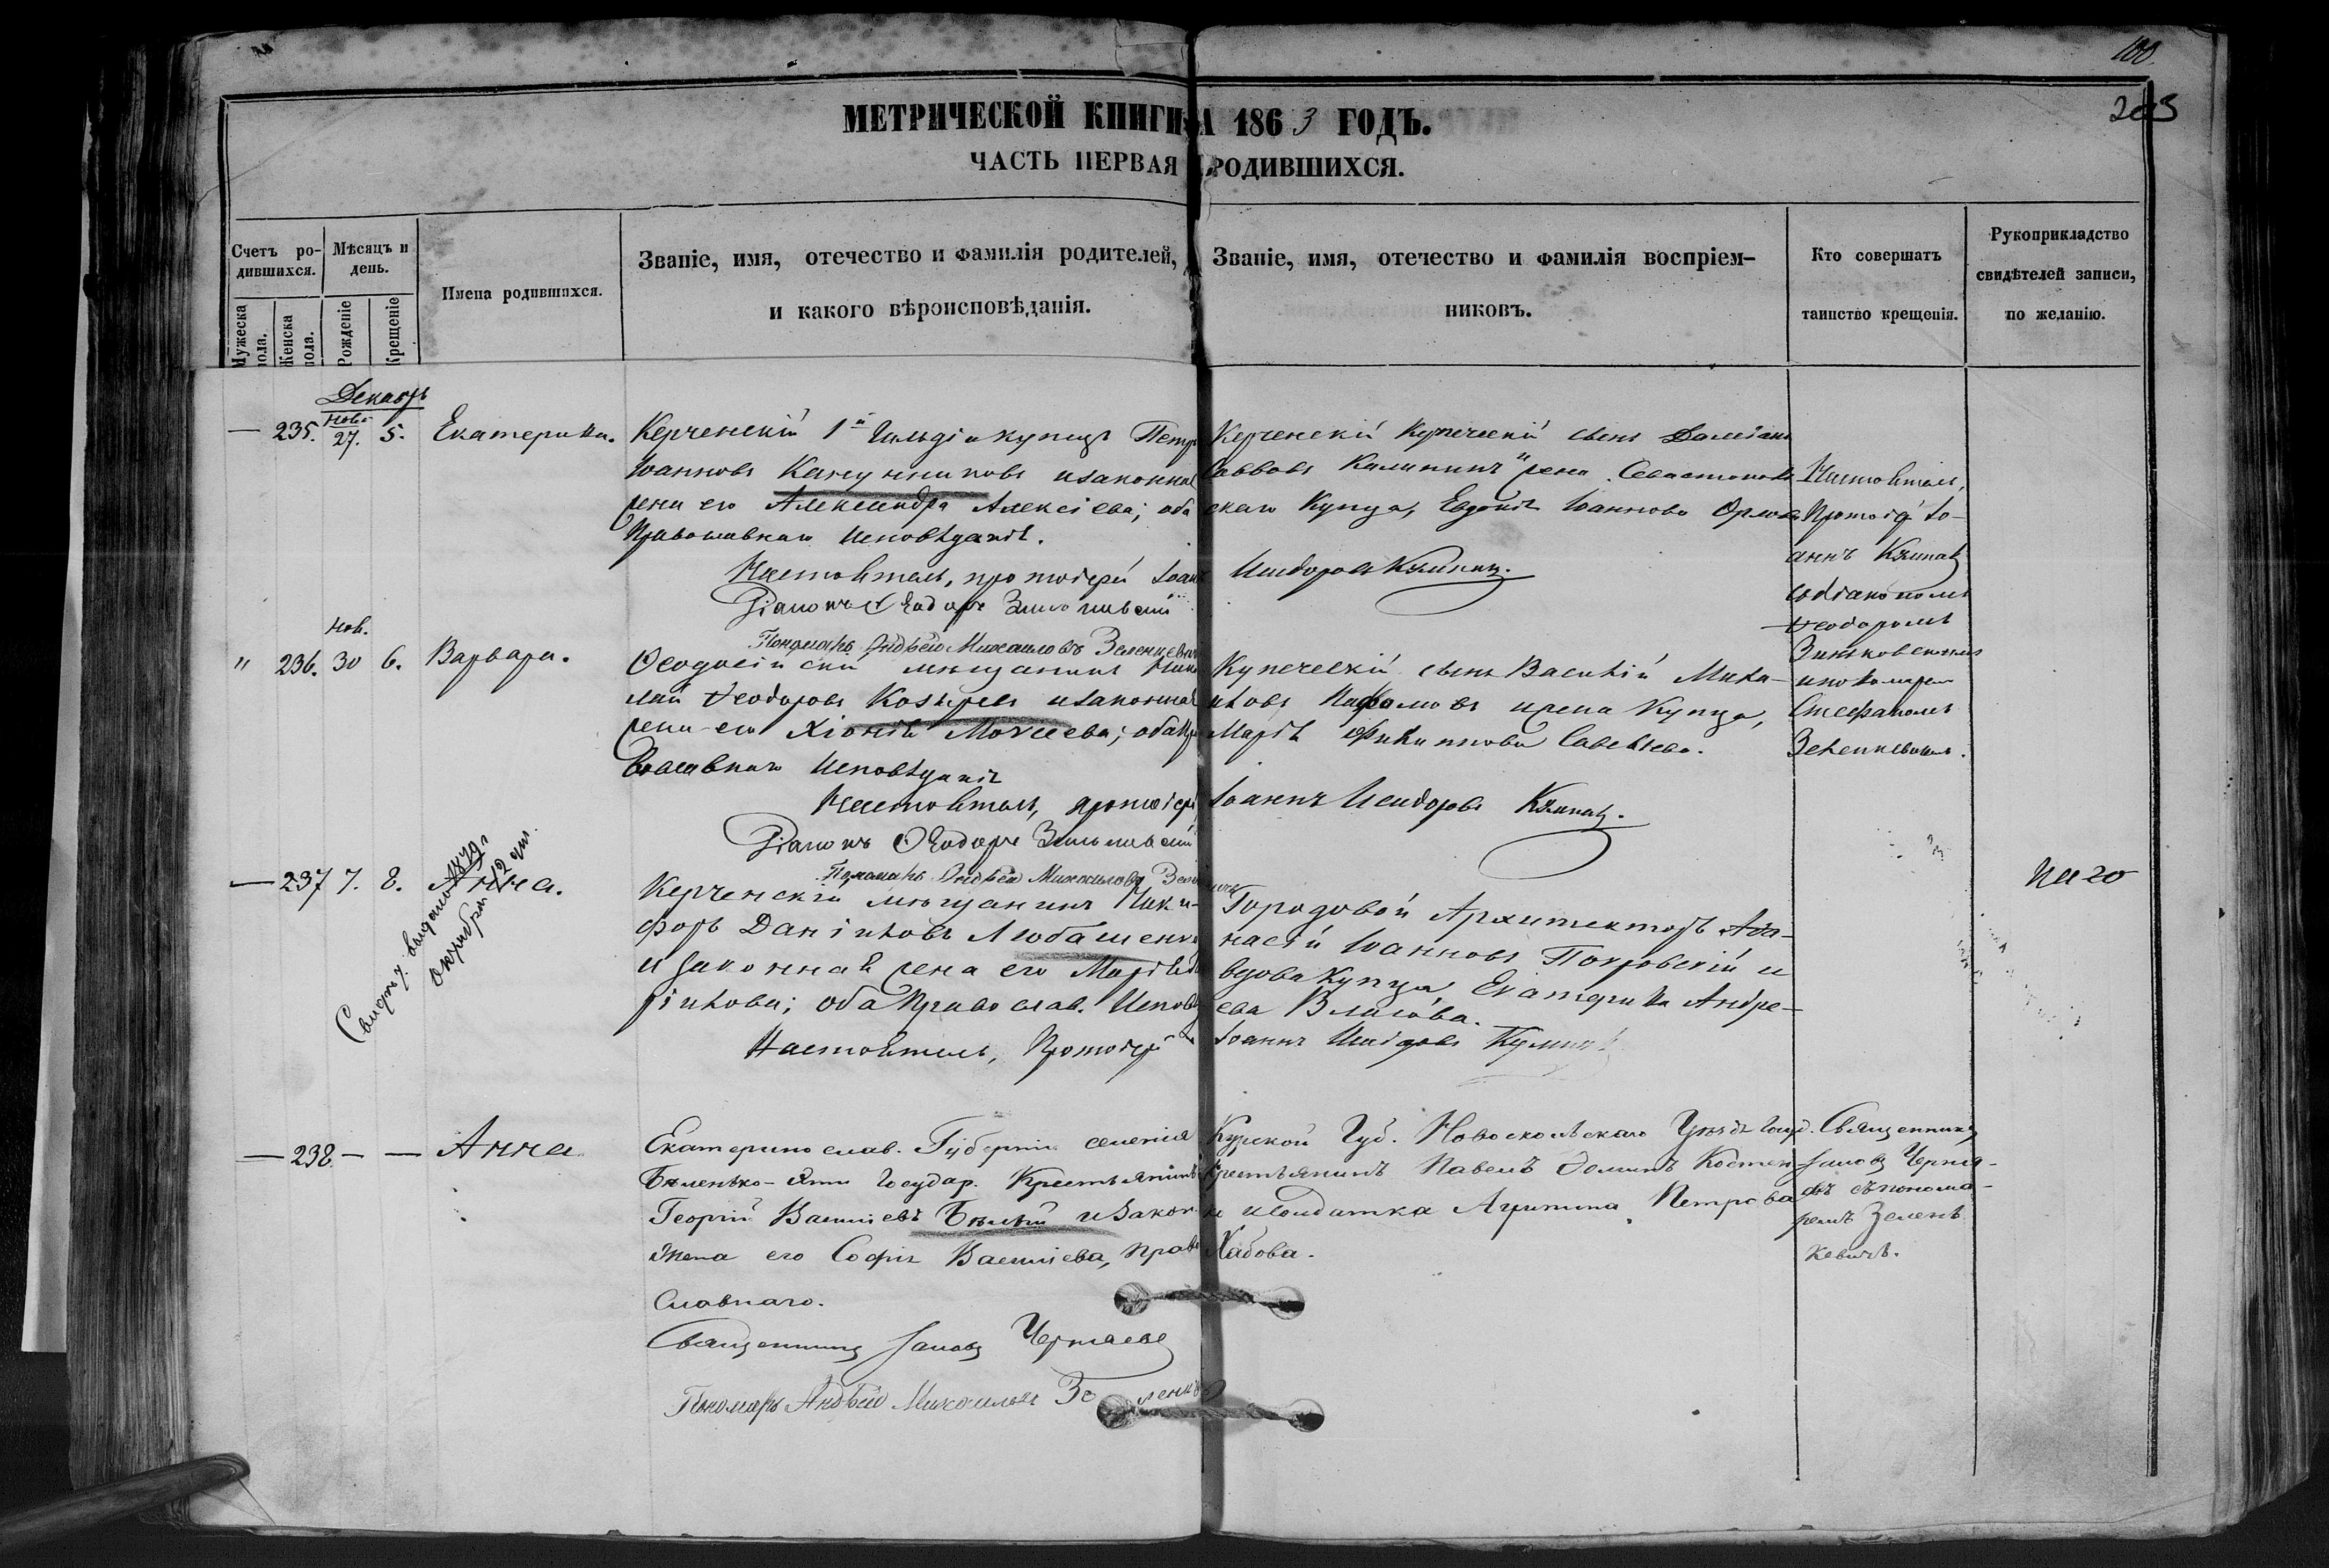 100
205
МЕТРИЧЕСКОЙ КНИГИ НА 1863 ГОДЪ.
ЧАСТЬ ПЕРВАЯ О РОДИВШИХСЯ.
Счетъ ро-
дившихся.
Мужеска пола.
Женска пола.
Мѣсяцъ и
день.
Рожденіе
Крещеніе
Имена родившихся.
Званіе, имя, отечество и фамилія родителей,
и какого вѣроисповѣданія.
Званіе, имя, отечество и фамилія воспріем-
никовъ.
Кто совершатъ
таинство крещенія.
Рукоприкладство
свидѣтелей записи,
по желанію.
Декабрь
— 235. Нов. 27. 5. Екатерина.
Керченскій 1й Гильдіи купецъ Петръ
Іоанновъ Канунниковъ и законная
жена его Александра Алексіева; оба
Православнаго Исповѣданія.
Настоятель, протоіерей Іоаннъ
Діаконъ Ѳеодоръ Зеньковскій
Пономарь Андрей Михаиловъ Зеленкевичъ
Керченскій Купеческій сынъ Даміанъ
Саввовъ Калининъ и жена Севастополь
скаго Купца, Евдокія Іоаннова Орлова
Исидоровъ Кумпанъ.
Настоятель,
Протоіер Іо-
аннъ
съ Діакономъ
Ѳеодоромъ
Зиньковскимъ
и пономарем
Стефаномъ
Зеленкевичемъ.
" 236. Нов. 30 6. Варвара.
Ѳеодосійскій мѣщанинъ Нико
лай Ѳеодоровъ Козыревъ и законная
жена его Хіонія Моисеева; оба Пра
вославнаго Исповѣданія
Настоятель, протоіерей
Діаконъ Ѳеодоръ Зеньковскій
Пономарь Андрей Михаиловъ
Купеческій сынъ Василій Миха-
иловъ Пафомовъ и жена Купца,
Марія Филиппова Савельева.
Іоаннъ Исидоровъ
— 237 7. 8. Анна.
Свидѣт. выдано 1879 г
октября 12 дня.
Керченскій мѣщанинъ Ники-
форъ Даніиловъ Любашенко
и законная жена его Марія
ріилова; оба Православ. Исповѣд
Настоятель, Протоіер
Городовой Архитекторъ Аѳа-
насій Іоанновъ Покровскій и
вдова Купца Екатерина Андре-
ева Власова.
Іоаннъ Исидоровъ
№ 20
— 238. — — Анна
Екатеринослав. Губерніи селенія
Бѣленько- Государ. Крестьянинъ
Георгій Василіевъ Бѣлый и закон.
жена его Софія Василіева, право
славнаго.
Священникъ Іаковъ Черняевъ
Пономарь Андрей Михаиловъ Зеленкевичъ
Курской Губ. Новоскольскаго Уѣзда Госуд.
Крестьянинъ Павелъ Костен
к и солдатка Агрипина Петрова
Хабова.
Священникъ
Іаковъ Черня-
евъ съ понома-
ремъ Зелен
кевичъ.